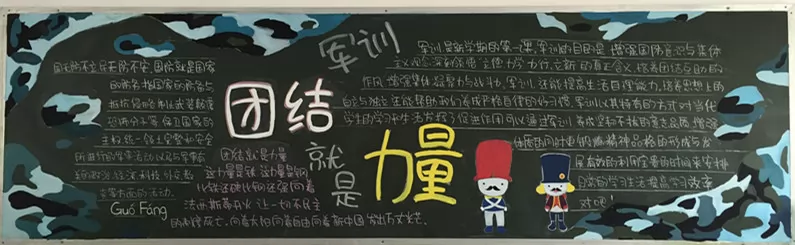 国无防不立民无防不安,国防就是国家
的防务,指国家的防备与
抵抗侵略制止武装颠覆
保卫国家的
主权,统一领土完整和安全
所进行的军事活动以及与军事有关
的政治,经济,科技,外交,教
育等方面的活动.
Guó Fáng
军训
团结
就
是
力量
团结就是力量
这力量是铁这力量是钢
比铁还硬比钢还强向着
法西斯蒂开火让一切不民主
的制度死亡.向着太阳向着自由向着新中国发出万丈光芒
军训是新学期的第一课,军训的目的是增强国防意识与集体
主义观念 培养团结互助的
作风,增强集体凝聚力与战斗力,军训还能提高生活自理能力,培养思想上的
自立与独立,还能帮助我们养成严格自律的好习惯,军训以其特有的方式对当代
学生的学习和生活发挥了促进作用,可以通过军训,养成坚和不拔的意志品质,增强
体质的同时更锻炼精神品格的形成与发
展,有效的利用宝贵的时间来安排
自己的学习生活提高学习效率
对吧!